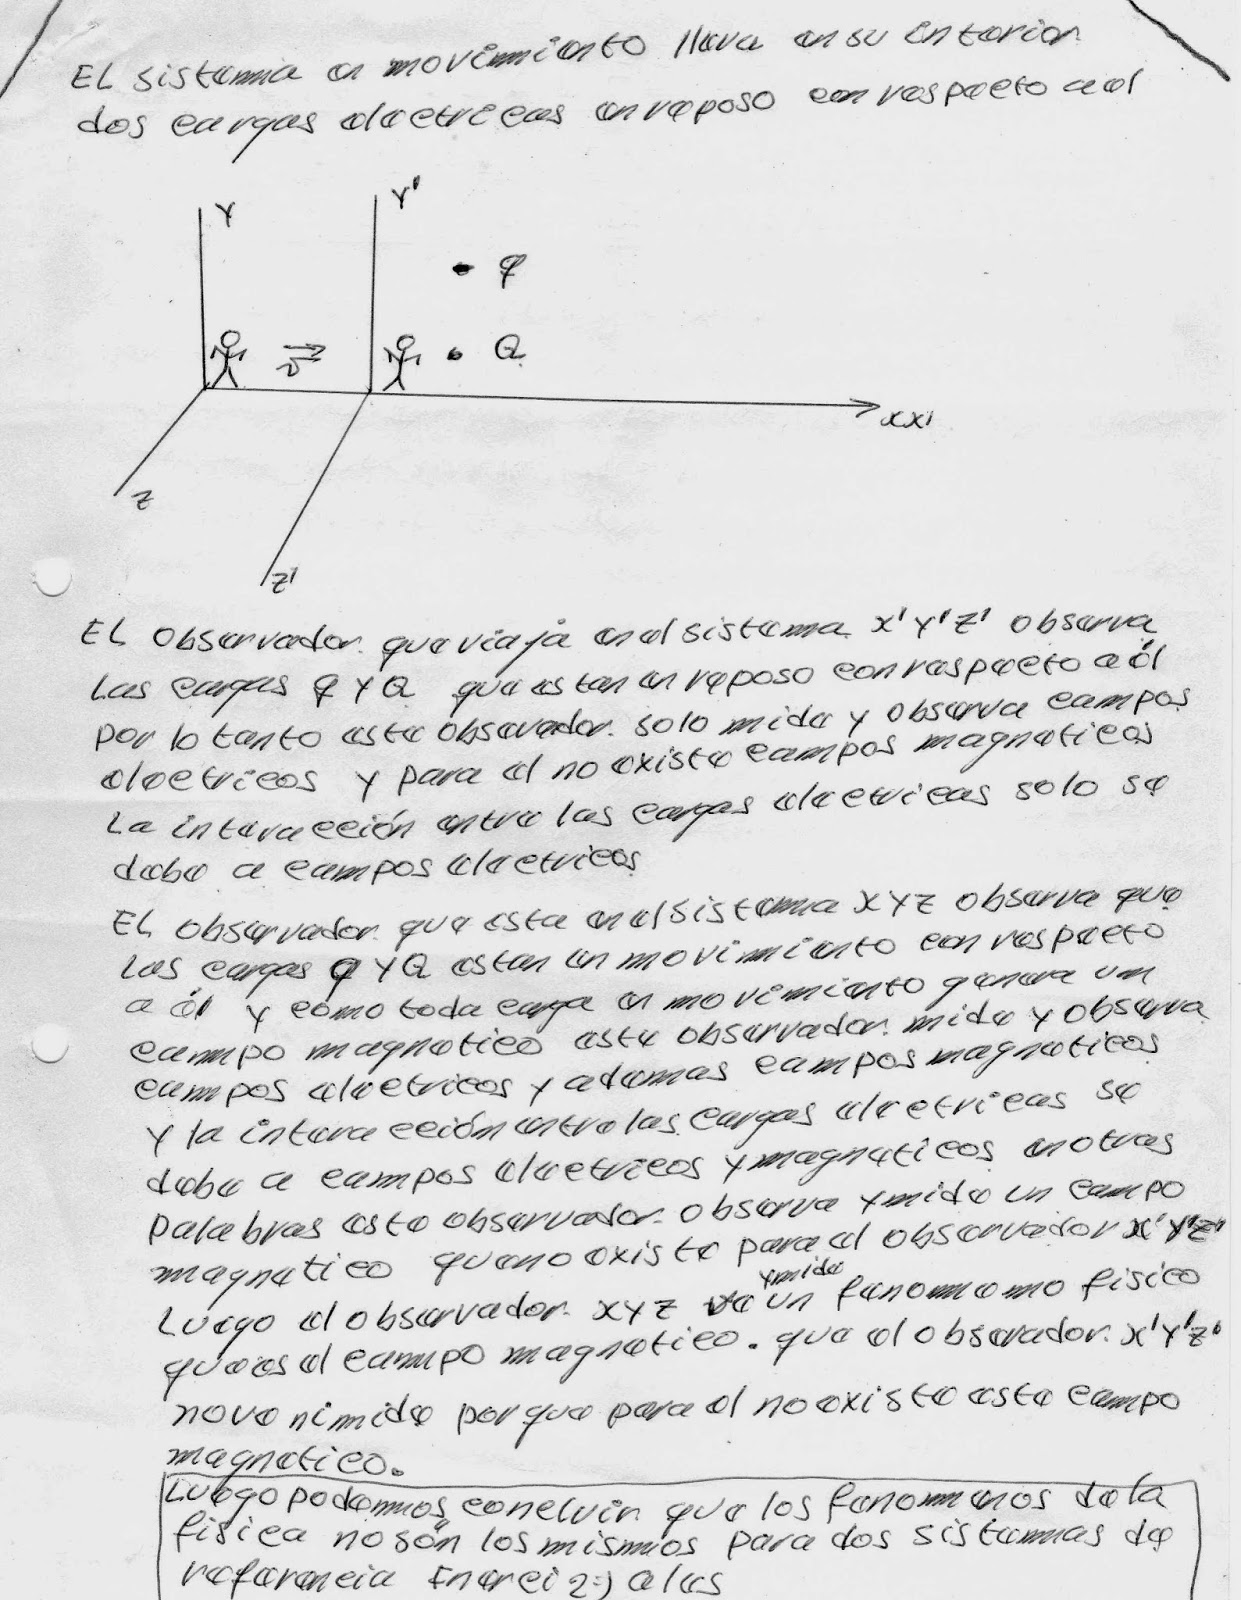 EL sistema en movimiento lleva en su interior
dos cargas electricas en reposo con respecto a el
Y
Y'
q
Q
v
XX'
Z
Z'
EL observador que viaja en el sistema X'Y'Z' observa
Las cargas q Y Q que estan en reposo con respecto a él
por lo tanto este observador solo mide y observa campos
electricos y para el no existe campos magneticos
La interacción entre las cargas electricas solo se
debe a campos electricos
EL observador que esta en el sistema XYZ observa que
Las cargas q Y Q estan en movimiento con respecto
a él y como toda carga en movimiento genera un
campo magnetico este observador mide y observa
campos electricos y ademas campos magneticos
y la interacción entre las cargas electricas se
debe a campos electricos y magneticos en otras
palabras este observador observa y mide un campo
magnetico que no existe para el observador X'Y'Z'
Luego el observador XYZ ve y mide un fenomeno fisico
que es el campo magnetico. que el observador X'Y'Z'
no ve ni mide porque para el no existe este campo
magnetico.
Luego podemos concluir que los fenomenos de la
fisica no són los mismos para dos sistemas de
referencia a las